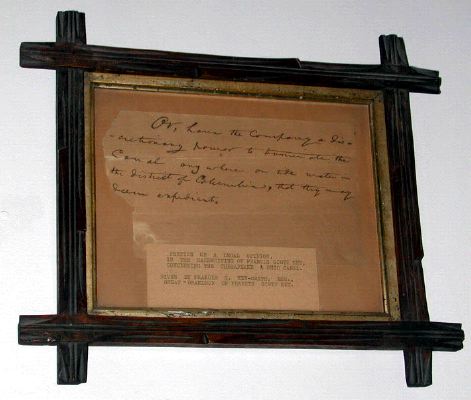 Or, have the Company a dis-
-cretionary power to terminate the
Canal any where on the water in
the District of Columbia, that they may
deem expedient.
PORTION OF A LEGAL OPINION,
IN THE HANDWRITING OF FRANCIS SCOTT KEY,
CONCERNING THE CHESAPEAKE & OHIO CANAL.
GIVEN BY FRANCIS S. KEY-SMITH, ESQ.,
GREAT-GRANDSON OF FRANCIS SCOTT KEY.